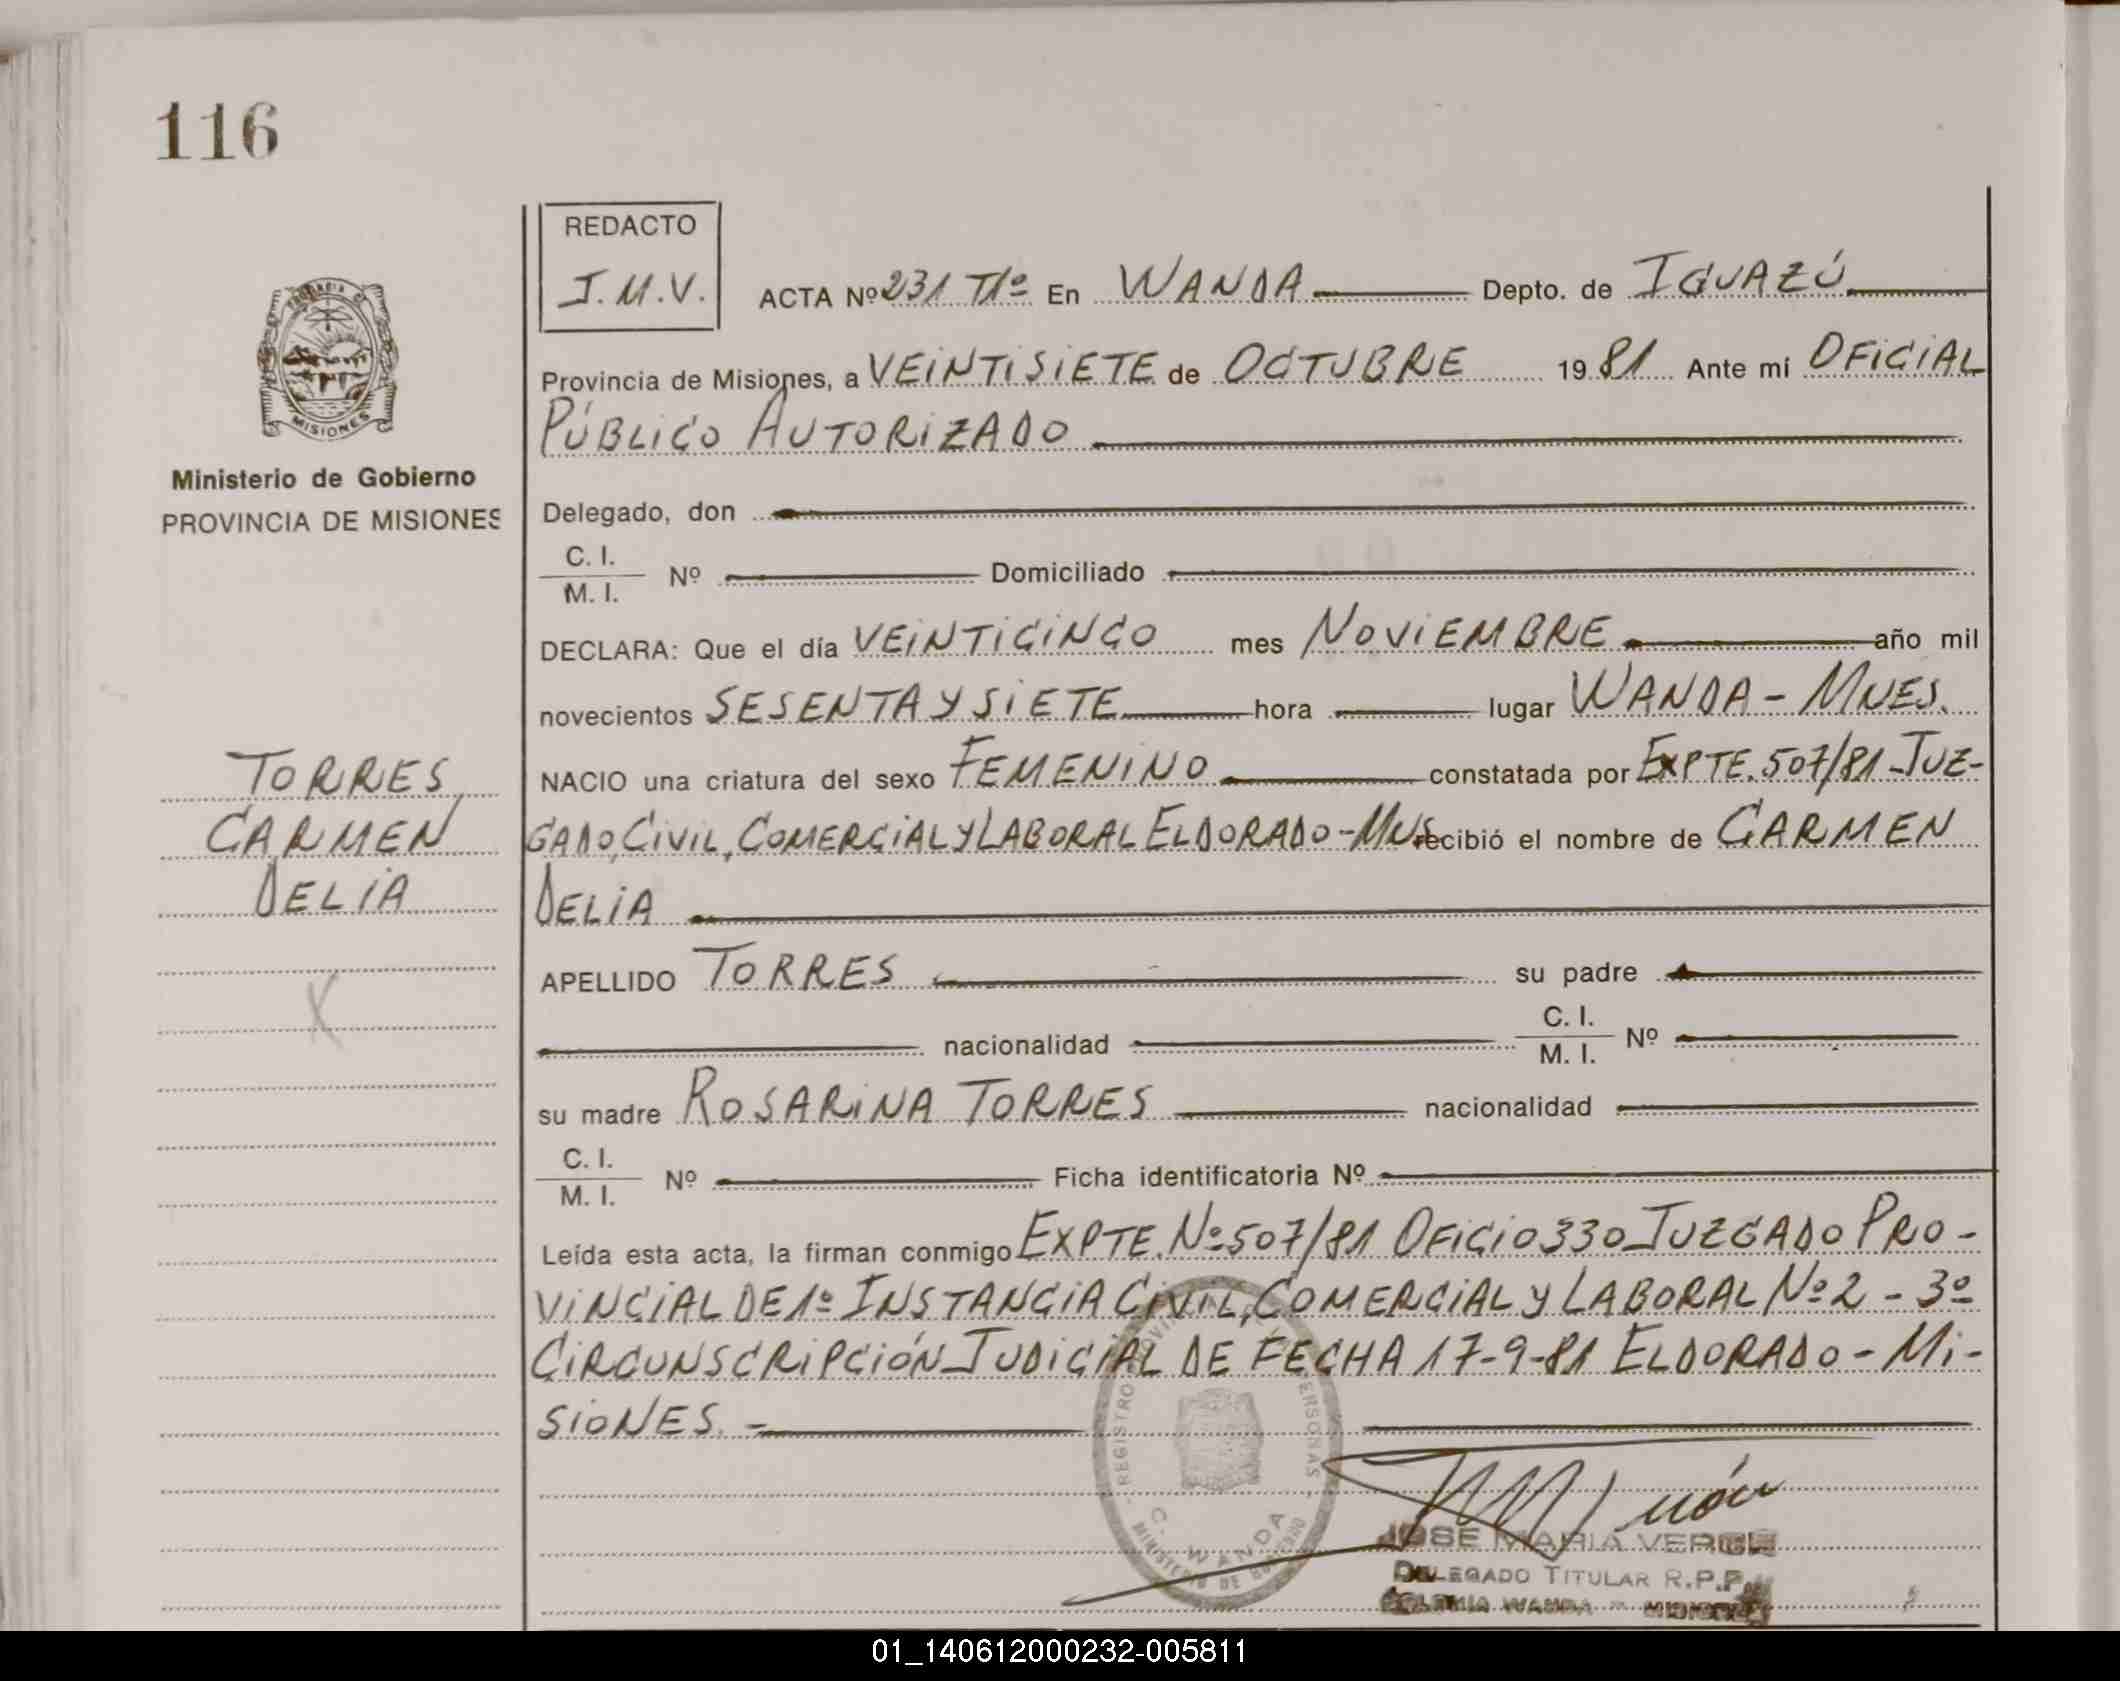 116
REDACTO
J.M.V.
ACTA Nº 231 Tº En WANDA Depto. de IGUAZÚ
Provincia de Misiones, a VEINTISIETE de OCTUBRE 1981 Ante mí OFICIAL
PÚBLICO AUTORIZADO
PROVINCIA DE
MISIONES
Ministerio de Gobierno
PROVINCIA DE MISIONES
Delegado, don
C. I.
M. I.
Nº Domiciliado
DECLARA: Que el día VEINTICINCO mes NOVIEMBRE año mil
novecientos SESENTA Y SIETE hora lugar WANDA - MNES.
NACIO una criatura del sexo FEMENINO constatada por EXPTE. 507/81 JUZ-
GADO, CIVIL, COMERCIAL Y LABORAL ELDORADO - MNS recibió el nombre de CARMEN
DELIA
TORRES,
CARMEN
DELIA
X
APELLIDO TORRES su padre
nacionalidad C. I.
M. I. Nº
su madre ROSARINA TORRES nacionalidad
C. I.
M. I.
Nº Ficha identificatoria Nº
Leída esta acta, la firman conmigo EXPTE. Nº 507/81 OFICIO 330 JUZGADO PRO-
VINCIAL DE 1º INSTANCIA CIVIL, COMERCIAL Y LABORAL Nº 2 - 3º
CIRCUNSCRIPCIÓN JUDICIAL DE FECHA 17-9-81 ELDORADO - MI-
SIONES. -
REGISTRO PROVINCIAL PERSONAS
C. WANDA
MINISTERIO DE GOBIERNO
JOSE MARIA VERGE
DELEGADO TITULAR R.P.P.
COLONIA WANDA - MISIONES
01_140612000232-005811